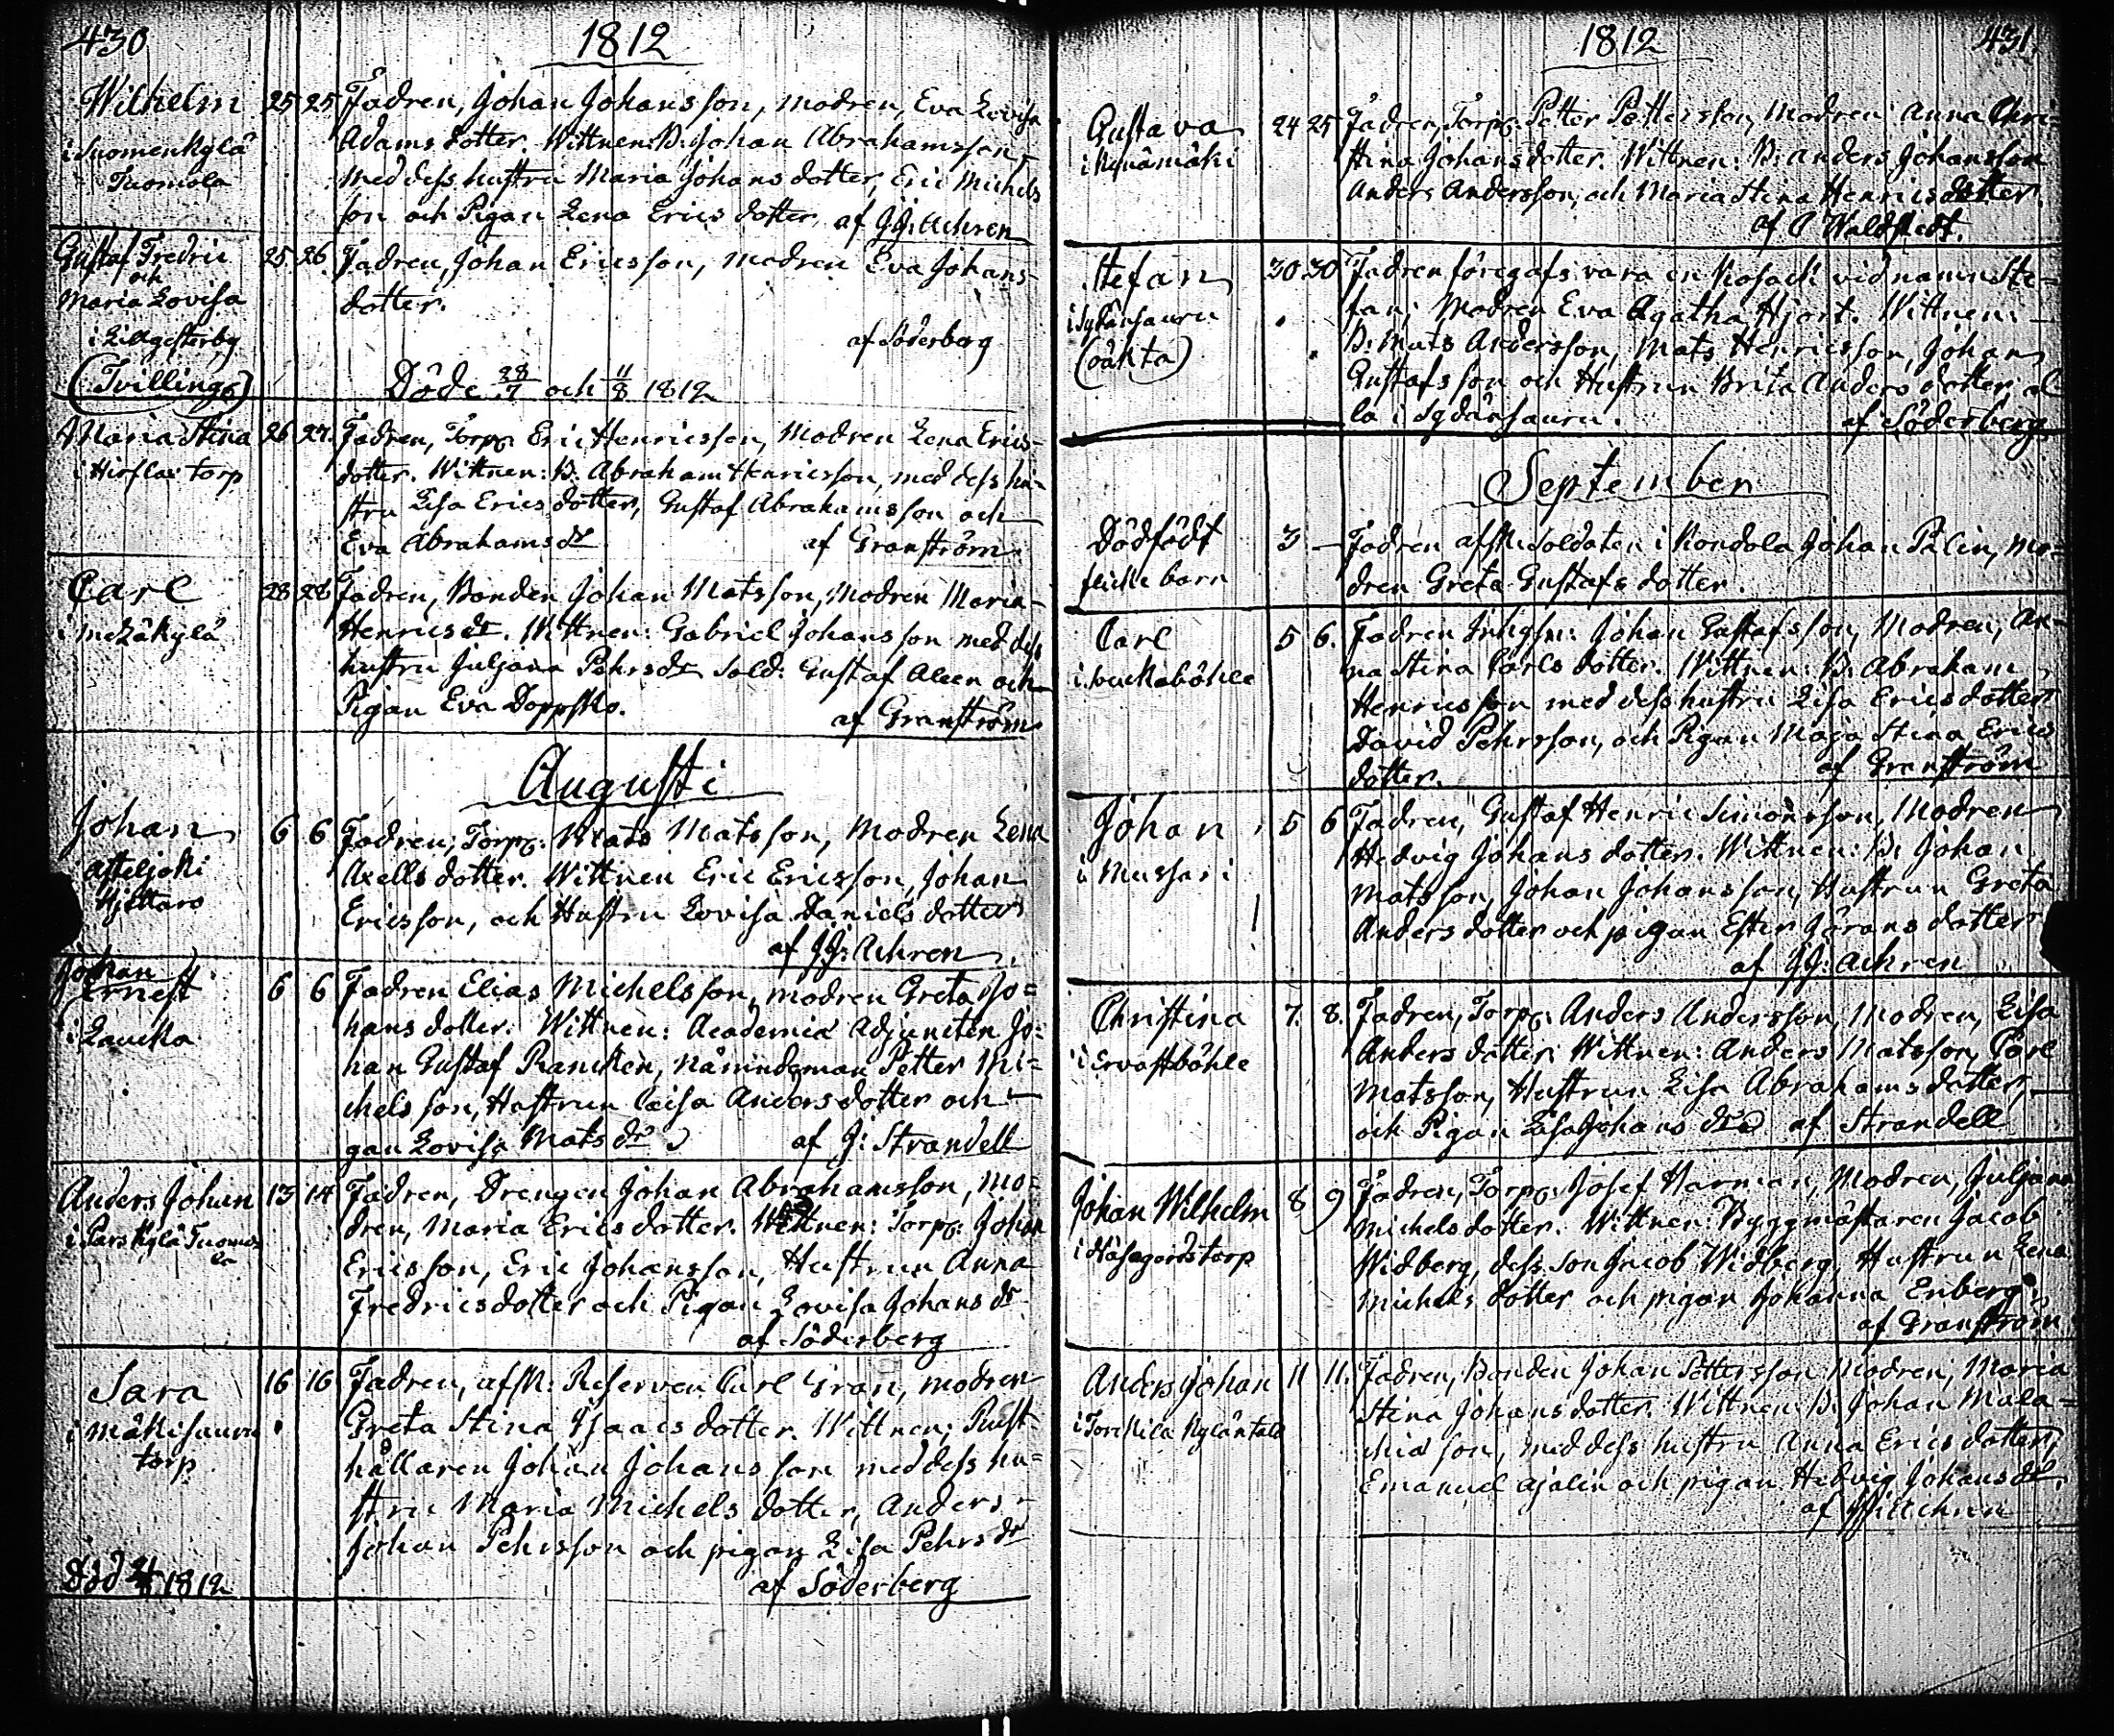 430
1812
Wilhelm 25 25 Fadren, Johan Johansson, modren, Eva Lovisa
Adams dotter. Wittnen: B: Johan Abrahamsson,
i Suomenkylä med dess hustru Maria Johans dotter, Eric Michels
Tuomola son och Pigan Lena Erics dotter af JJ: Achren
Gustaf Fredric 25. 26. Fadren, Johan Ericsson, modren Eva Johans-
och dotter.
Maria Lovisa
i Lillgesterby af Söderberg
(Tvillingr) Döde 28/7 och 11/8 1812
Maria Stina 26 27. Fadren, Torp: Eric Henricsson, Modren Lena Erics-
i Hirslax torp dotter. Wittnen: B. Abraham Henricsson, med dess hu-
stru Lisa Erics dotter, Gustaf Abrahamsson och
Eva Abrahams dr af Granström
Carl 28 28 Fadren, Bonden Johan Matsson, Modren Maria
i Mezäkylä Henrics dr. Wittnen: Gabriel Johansson med dess
hustru Juljana Pehrs dr Sold: Gustaf Aleen och
Pigan Eva Doppsko. af Granström
Augusti
Johan 6 6 Fadren, Torp: Mats Matsson, Modren Lena
Axells dotter. Wittnen Eric Ericsson, Johan
Ericsson, och Hustru Lovisa Daniels dotter
af JJ: Achren
Johan
Ernest 6 6 Fadren Elias Michelsson, modren Greta Jo=
i Laucka hans dotter. Wittnen: Academiæ Adjuncten Jo=
han Gustaf Rancken, Nämndeman Petter Mi=
chelsson, Hustrun Caisa Anders dotter och
gan Lovisa Mats dr af J: Strandell
Anders Johan 13 14 Fadren, Drengen Johan Abrahamsson, Mo=
i Parskylä Tuomo- dren, Maria Erics dotter. Wittnen: Torp: Johan
la Ericsson, Eric Johansson, Hustrun Anna
Fredrics dotter och Pigan Lovisa Johans dr
af Söderberg
Sara 16 16 Fadren, afsk: Reserven Carl Gran, modren
i Mäkisauru Greta Stina Isaacs dotter. Wittnen; Rust-
torp hållaren Johan Johansson med dess hu=
stru Maria Michels dotter, Anders
Johan Pehrsson och pigan Lisa Pehrs dr
Död 1812 af Söderberg
1812
431.
Gustava 24 25 Fadren, Torp: Petter Pettersson, Modren Anna Chri-
stina Johans dotter. Wittnen: B: Anders Johansson
Anders Andersson, och Maria Stina Henrics dotter.
af C Waldstedt.
Stefan 30 30 Fadren föregafs vara en Kosack vid namn Ste-
i Sydänsauru fan; Modren Eva Agatha Hjort. Wittnen:
(oäkta) B: Mats Andersson, Mats Henricsson, Johan
Gustafsson och Hustrun Brita Anders dotter al
la i Sydänsauru. af Söderberg
September
Dödfödt 3 — Fadren afsk: Soldaten i Kondola Johan Palin, Mo-
flicke barn dren Greta Gustafs dotter.
Carl 5 6. Fadren Inhysn: Johan Gustafsson, Modren, An-
na Stina Carls dotter. Wittnen: B: Abraham
i Louckaböhle Henricsson med dess hustru Lisa Erics dotter
David Pehrsson, och Pigan Maja Stina Erics
dotter. af Granström
Johan 5 6 Fadren, Gustaf Henric Simonsson, Modren
Hedvig Johans dotter. Wittnen: B: Johan
i Mussari Matsson, Johan Johansson, Hustrun Greta
Anders dotter och pigan Ester Görans dotter
af JJ: Achren
Christina 7. 8. Fadren, Torp: Anders Andersson, Modren, Lisa
i Ervastböhle Anders dotter. Wittnen: Anders Matsson, Carl
Matsson, Hustrun Lisa Abrahams dotter,
och Pigan Lisa Johans dr af Strandell
Johan Wilhelm 8 9 Fadren, Torp: Josef Harman, Modren, Juljana
i Näsegårds torp Michels dotter. Wittnen: Byggmästaren Jacob
Widberg, dess son Jacob Widberg, Hustrun Lena
Michels dotter och pigan Johanna Enberg.
af Granström
Anders Johan 11 11. Fadren, Bonden Johan Pettersson Modren, Maria
i Torckila Kyläntals Stina Johans dotter. Wittnen: B: Johan Mala=
chiæ son, med dess hustru Anna Erics dotter,
Emanuel Ajalin och pigan Hedvig Johans dr.
af JJ: Achren